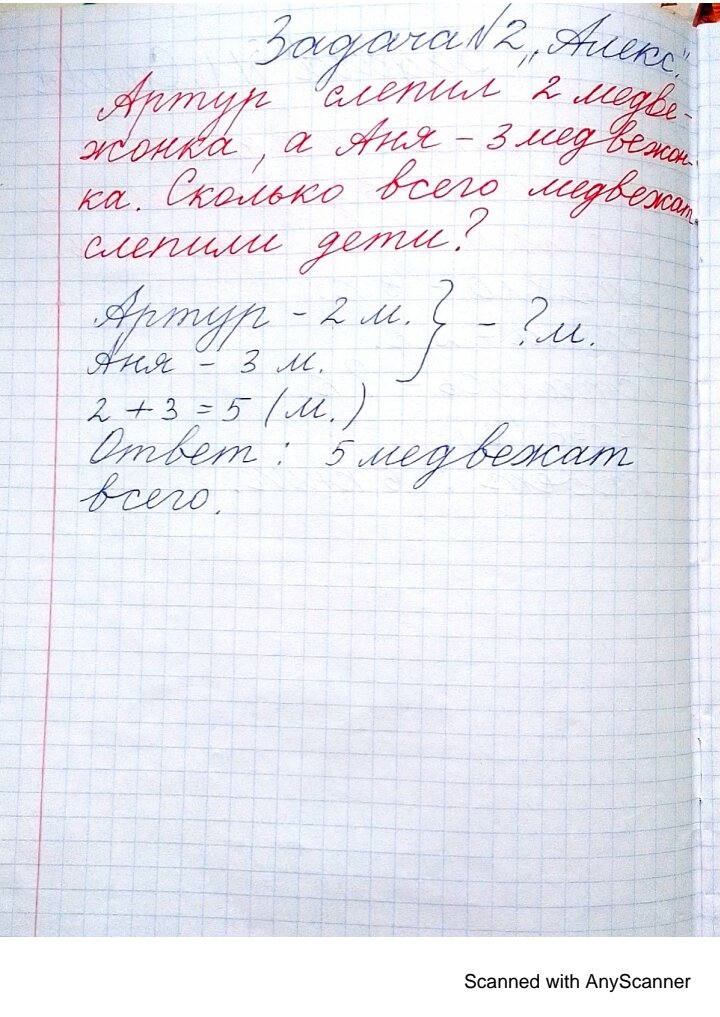 Задача №2 „Алекс".
Артур слепил 2 медве-
жонка, а Аня – 3 медвежон-
ка. Сколько всего медвежат
слепили дети?
Артур – 2 м. } – ? м.
Аня – 3 м.
2 + 3 = 5 (м.)
Ответ: 5 медвежат
всего.
Scanned with AnyScanner